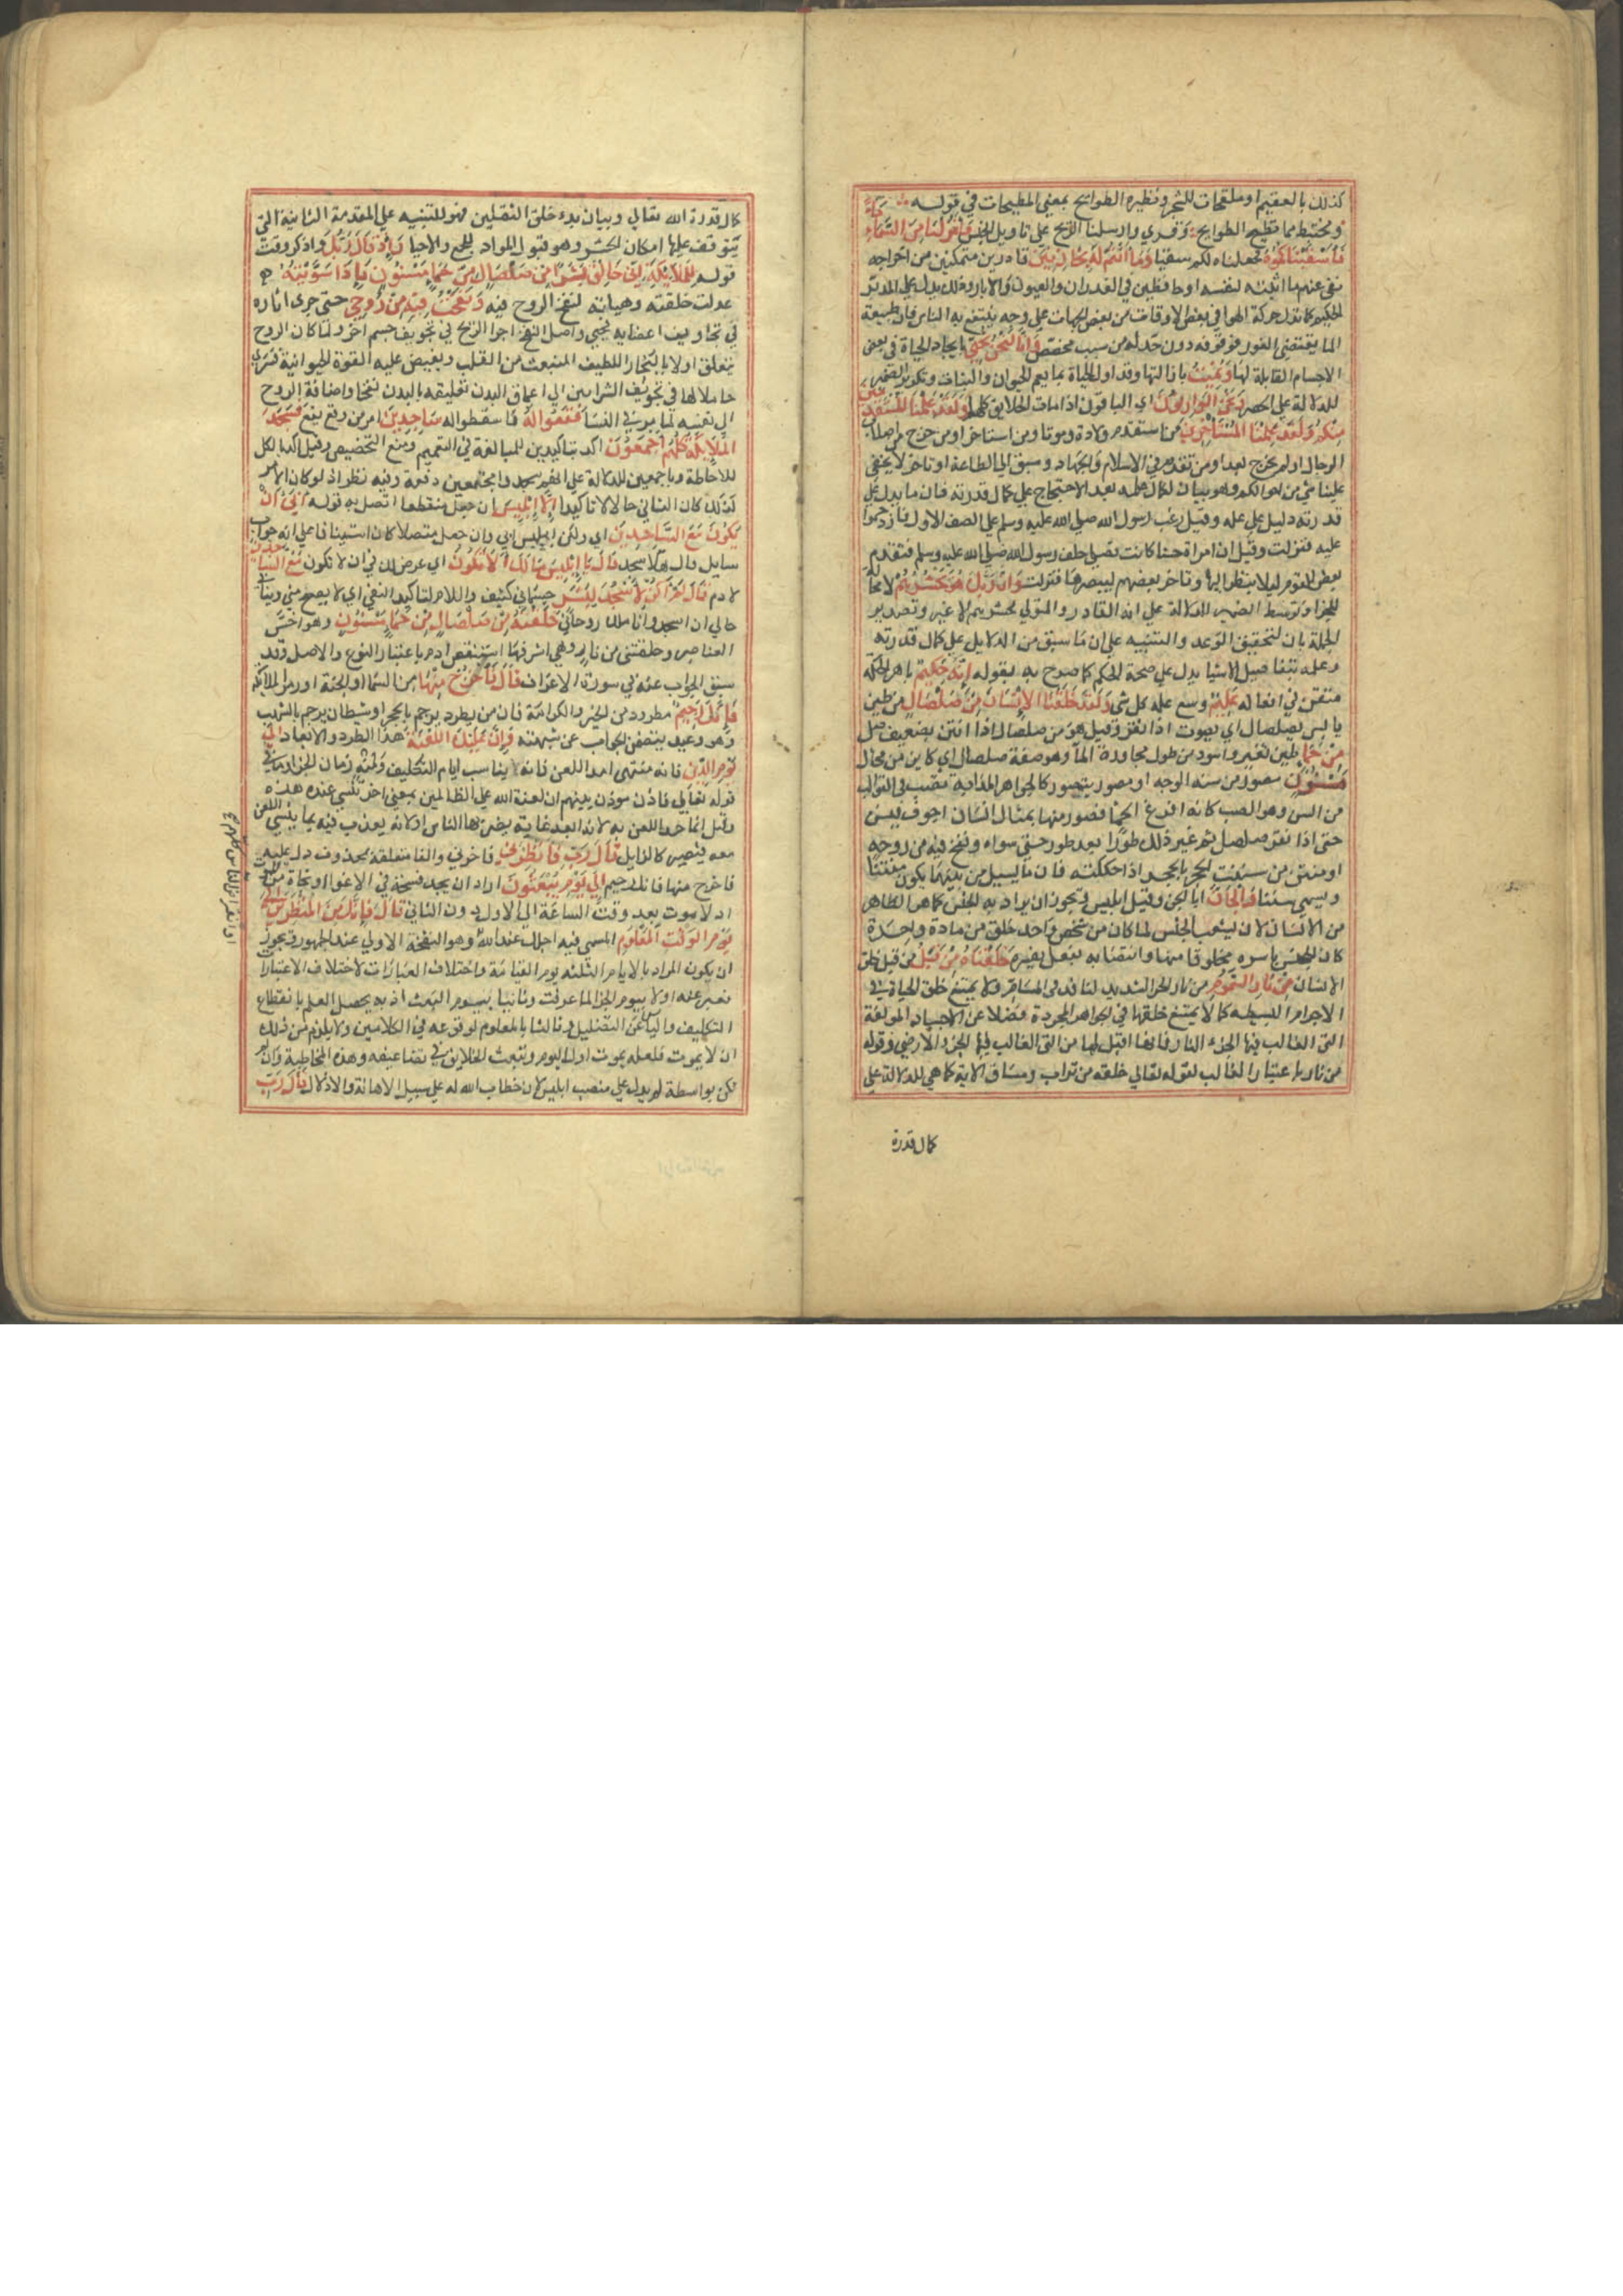 كذلك بالعقيم او ملقحات للشجر ونظيره الطوايح بمعنى المطيحات في قوله
ومختبط مما تطيح الطوايح وقري وارسلنا الريح على تاويل الجنس فانزلنا من السماء ماء
فاسقيناكموه فجعلناه لكم سقيا وما انتم له بخازنين قادرين متمكنين من اخراجه
نفى عنهم ما اثبته لنفسه او حافظين في الغدران والعيون والابار وذلك يدل على المدبر
الحكيم كما تدل حركة الهوا في بعض الاوقات من بعض الجهات على وجه ينتفع به الناس فان طبيعة
الما يقتضي الغور فوقوفه دون حد له من سبب مخصص وانا لنحن نحيي بايجاد الحياة في بعض
الاجسام القابلة لها ونميت بازالتها وقد اول الحياة بما يعم الحيوان والنبات وتكرير الضمير
للدلالة على الحصر ونحن الوارثون اي الباقون اذا مات الخلايق كلها ولقد علمنا المستقدمين
منكم ولقد علمنا المستاخرين من استقدم ولادة وموتا ومن استاخر او من خرج من اصلاب
الرجال او لم يخرج بعد او من تقدم في الاسلام والجهاد وسبق الي الطاعة او تاخر لا يخفى
علينا شي من احوالكم وهو بيان لكمال علمه بعد الاحتجاج على كمال قدرته فان ما يدل على
قدرته دليل على علمه وقيل رغب رسول الله صلى الله عليه وسلم على الصف الاول فازدحموا
عليه فنزلت وقيل ان امراة حسنا كانت تصلي خلف رسول الله صلى الله عليه وسلم فتقدم
بعض القوم ليلا ينظر اليها وتاخر بعضهم ليبصرها فنزلت وان ربك هو يحشرهم لا محالة
للجزا وتوسط الضمير للدلالة على انه القادر والمتولي لحشرهم لا غير وتصدير
الجملة بان لتحقيق الوعد والتنبيه على ان ما سبق من الدلايل على كمال قدرته
وعلمه بتفاصيل الاشيا يدل على صحة الحكم كما صرح به بقوله انه حكيم باهر الحكمة
متقن في افعاله عليم وسع علمه كل شي ولقد خلقنا الانسان من صلصال من طين
يابس يصلصل اي يصوت اذا نقر وقيل هو من صلصل اذا انتن تضعيف صل
من حما طين تغير واسود من طول مجاورة الما وهو صفة صلصال اي كاين من حما
مسنون مصور من سنه الوجه او مصور يتصور كالجواهر المذابة تصب في القوالب
من السن وهو الصب كانه افرغ الحما فصور منها بمثال انسان اجوف يبس
حتى اذا نقر صلصل ثم غير ذلك طورا بعد طور حتى سواه ونفخ فيه من روحه
او منتن من سننت الحجر بالحجر اذا حككته فان ما يسيل من بينهما يكون منتنا
ويسمي سننا والجان ابا الجن وقيل ابليس ويجوز ان يراد به الجنس كما هو الظاهر
من الانسان لان ليشعب الجنس لما كان من شخص واحد خلق من مادة واحدة
كان الجنس باسره مخلوقا منها وانتصابه بفعل يفسره خلقناه من قبل من قبل خلق
الانسان من نار السموم من نار الحر الشديد النافذ في المسام ولا يمتنع خلق الحياة في
الاجرام البسيطه كما لا يمتنع خلقها في الجواهر المجردة فضلا عن الاجساد المولفة
التى الغالب فيها الجزء النار فانها اقبل لها من التى الغالب فيها الجزء الارضي وقوله
من نار باعتبار الغالب لقوله تعالي خلقه من تراب ومساق الاية كما هي للدلالة على
كمال قدرة
كمال قدرة الله تعالي وبيان بدء خلق الثقلين فهو للتنبيه علي المقدمة الثانية التى
يتوقف عليها امكان الحشر وهو قبول المواد للجمع والاحيا واذ قال ربك واذكر وقت
قوله للملائكة اني خالق بشرا من صلصال من حما مسنون فاذا سويته
عدلت خلقته وهياته لنفخ الروح فيه ونفخت فيه من روحي حتى جرى اثاره
في تجاويف اعضايه فحيي واصل النفخ اجرا الريح في تجويف جسم اخر ولما كان الروح
يتعلق اولا بالبخار اللطيف المنبعث من القلب ويفيض عليه القوة الحيوانية فيسري
حاملا لها في تجويف الشرايين الي اعماق البدن تعليقه بالبدن نفخا واضافة الروح
الي نفسه لما مر في النسا فقعوا له فاسقطوا له ساجدين امر من وقع يقع فسجد
الملائكة كلهم اجمعون اكد بتاكيدين للمبالغة في التعميم ومنع التخصيص وقيل اكد بالكل
للاحاطة وباجمعين للدلالة على انهم سجدوا مجتمعين دفعة وفيه نظر اذ لو كان الامر
كذلك كان الثاني حالا لا تاكيدا الا ابليس ان جعل منقطعا اتصل به قوله ابى ان
يكون مع الساجدين اي ولكن ابليس ابي وان جعل متصلا كان استينافا على انه جواب
سايل قال هلا سجد قال يا ابليس ما لك الا تكون اي عرض لك في ان لا تكون مع الساجدين
لادم قال لم اكن لاسجد لبشر جسماني كثيف واللام لتاكيد النفي اي لا يصح مني وينافي
حالي ان اسجد وانا ملك روحاني خلقته من صلصال من حما مسنون وهو اخس
العناصر وخلقتني من نار وهي اشرفها استنقص ادم باعتبار النوع والاصل وقد
سبق الجواب عنه في سورة الاعراف قال فاخرج منها من السما او الجنة او زمر الملائكة
فانك رجيم مطرود من الخير والكرامة فان من يطرد يرجم بالحجر او شيطان يرجم بالشهب
وهو وعيد يتضمن الجواب عن شبهته وان عليك اللعنة هذا الطرد والابعاد الى
يوم الدين فانه منتهى امد اللعن فانه يناسب ايام التكليف ومنه زمان الجزا وما في
قوله تعالي فاذن موذن بينهم ان لعنة الله علي الظالمين بمعني اخر ينسي عنده هذه
وقيل انما حد اللعن به لانه ابعد غاية يضربها الناس او لانه يعذب فيه بما ينسي اللعن
معه فيصير كالزايل قال رب فانظرني فاخرني والفا متعلقة بمحذوف دل عليه
فاخرج منها فانك رجيم الي يوم يبعثون اراد ان يجد فسحة في الاغوا او نجاة من الموت
اذ لا موت بعد وقت الساعة الى الاول دون الثاني قال فانك من المنظرين الي
يوم الوقت المعلوم المسمى فيه اجلك عند الله وهو النفخة الاولي عند الجمهور ويجوز
ان يكون المراد بالايام الثلثه يوم القيامة واختلاف العبارات لاختلاف الاعتبارات
فعبر عنه اولا بيوم الجزا لما عرفت وثانيا بيوم البعث اذ به يحصل العلم بانقطاع
التكليف والياس عن التضليل وثالثا بالمعلوم لوقوعه في الكلامين ولا يلزم من ذلك
ان لا يموت فلعله يموت اول اليوم ويبعث الخلايق في تضاعيفه وهذه المخاطبة وان لم
تكن بواسطة لم يدل علي منصب ابليس لان خطاب الله له علي سبيل الاهانة والاذلال قال رب